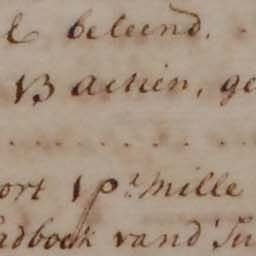 & beleend.
13 actien, ge
ort 1 p.r mille
adboek vand' Su